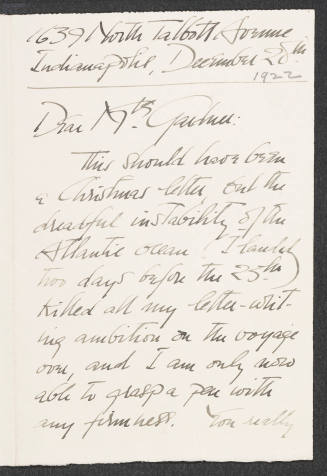 1639 North Talbott Avenue
Indianapolis, December 28th
1922
Dear Mrs. Gardner:
This should have been
a Christmas letter, but the
dreadful instability of the
Atlantic ocean (I landed
two days before the 25th)
killed all my letter-writ-
ing ambition on the voyage
over, and I am only now
able to grasp a pen with
any firmness. You really